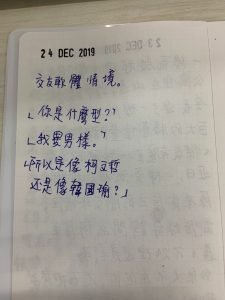 24 DEC 2019
交友軟體情境。
「你是什麼型?」
「我要男樣。」
「所以是像柯文哲
還是像韓國瑜?」